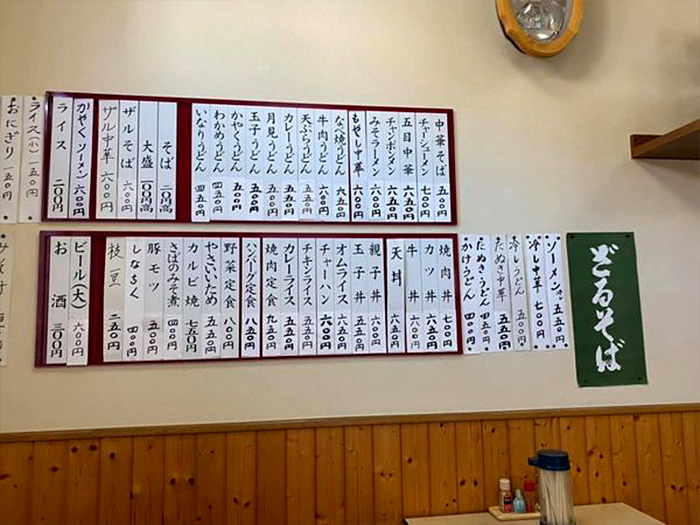 中華そば 五五〇円
チャーシューメン 七〇〇円
五目中華 六五〇円
チャンポンメン 六五〇円
みそラーメン 六〇〇円
もやし中華 六〇〇円
なべ焼うどん 六五〇円
牛肉うどん 六〇〇円
天ぷらうどん 五五〇円
カレーうどん 五五〇円
月見うどん 五〇〇円
玉子うどん 五〇〇円
かやくうどん 五〇〇円
わかめうどん 五〇〇円
いなりうどん 四五〇円
そば 二〇円高
大盛 一〇〇円高
ザルそば 六〇〇円
ザル中華 六〇〇円
かやくソーメン 六〇〇円
ライス 二〇〇円
ライス(小) 一五〇円
おにぎり 一五〇円
ソーメン 五五〇円
冷し中華 七〇〇円
冷しうどん 五〇〇円
たぬき中華 五五〇円
たぬきうどん 四五〇円
かけうどん 四〇〇円
焼肉丼 七〇〇円
カツ丼 六〇〇円
牛丼 六〇〇円
天丼 六五〇円
親子丼 六〇〇円
玉子丼 五五〇円
オムライス 六五〇円
チャーハン 六〇〇円
チキンライス 六五〇円
カレーライス 五五〇円
焼肉定食 九五〇円
ハンバーグ定食 八〇〇円
野菜定食 八〇〇円
やさいいため 五五〇円
カルビ焼 七五〇円
さばのみそ煮 四〇〇円
豚モツ 五〇〇円
しなちく 四五〇円
枝豆 二五〇円
ビール(大) 六〇〇円
お酒 三〇〇円
ざるそば